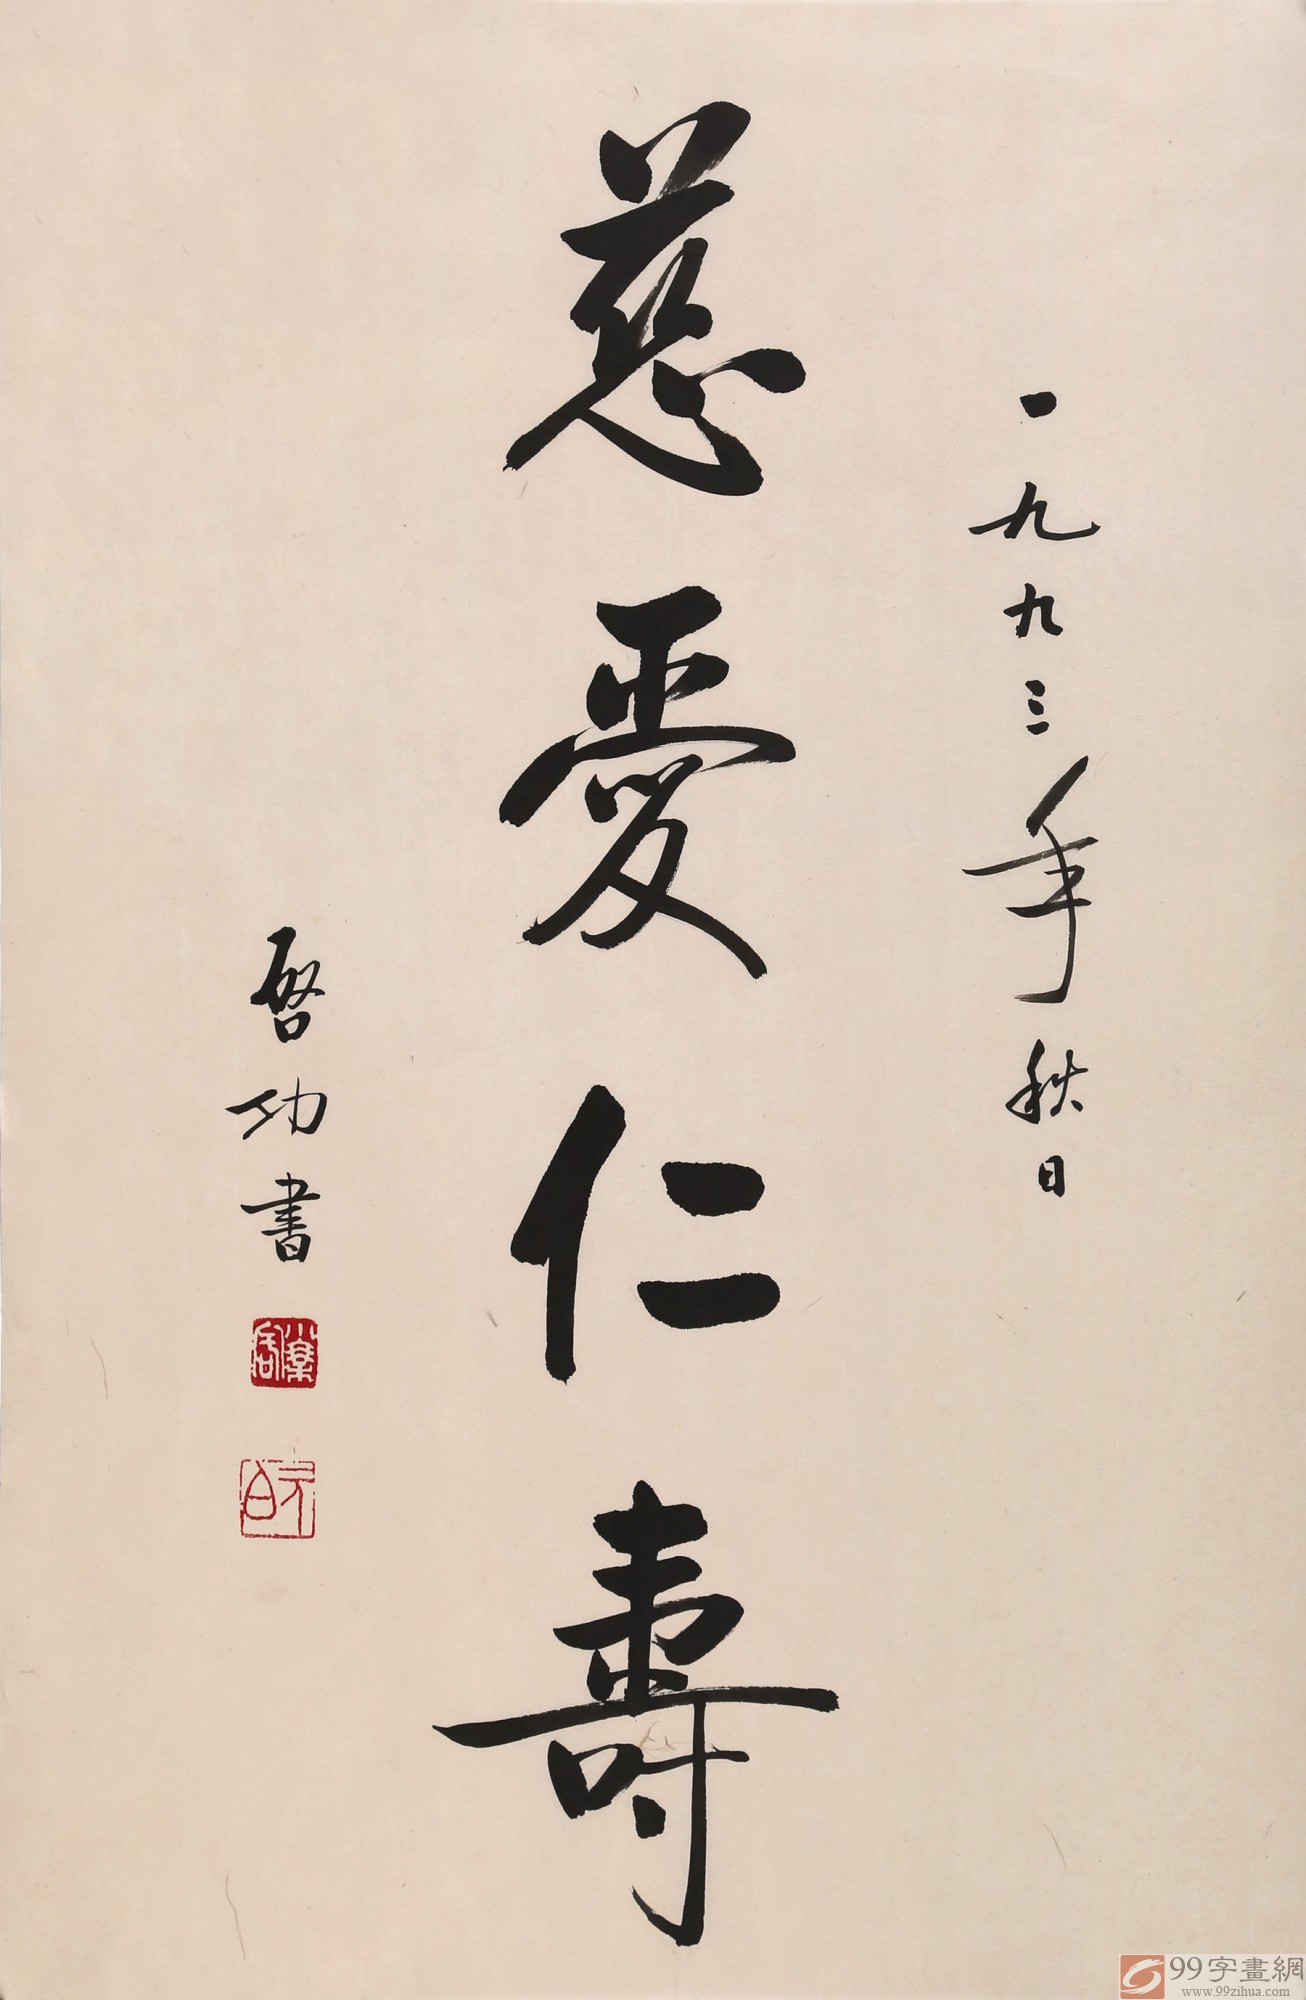 一九九三年秋日
慈愛仁壽
啓功書
99字畫網
www.99zihua.com